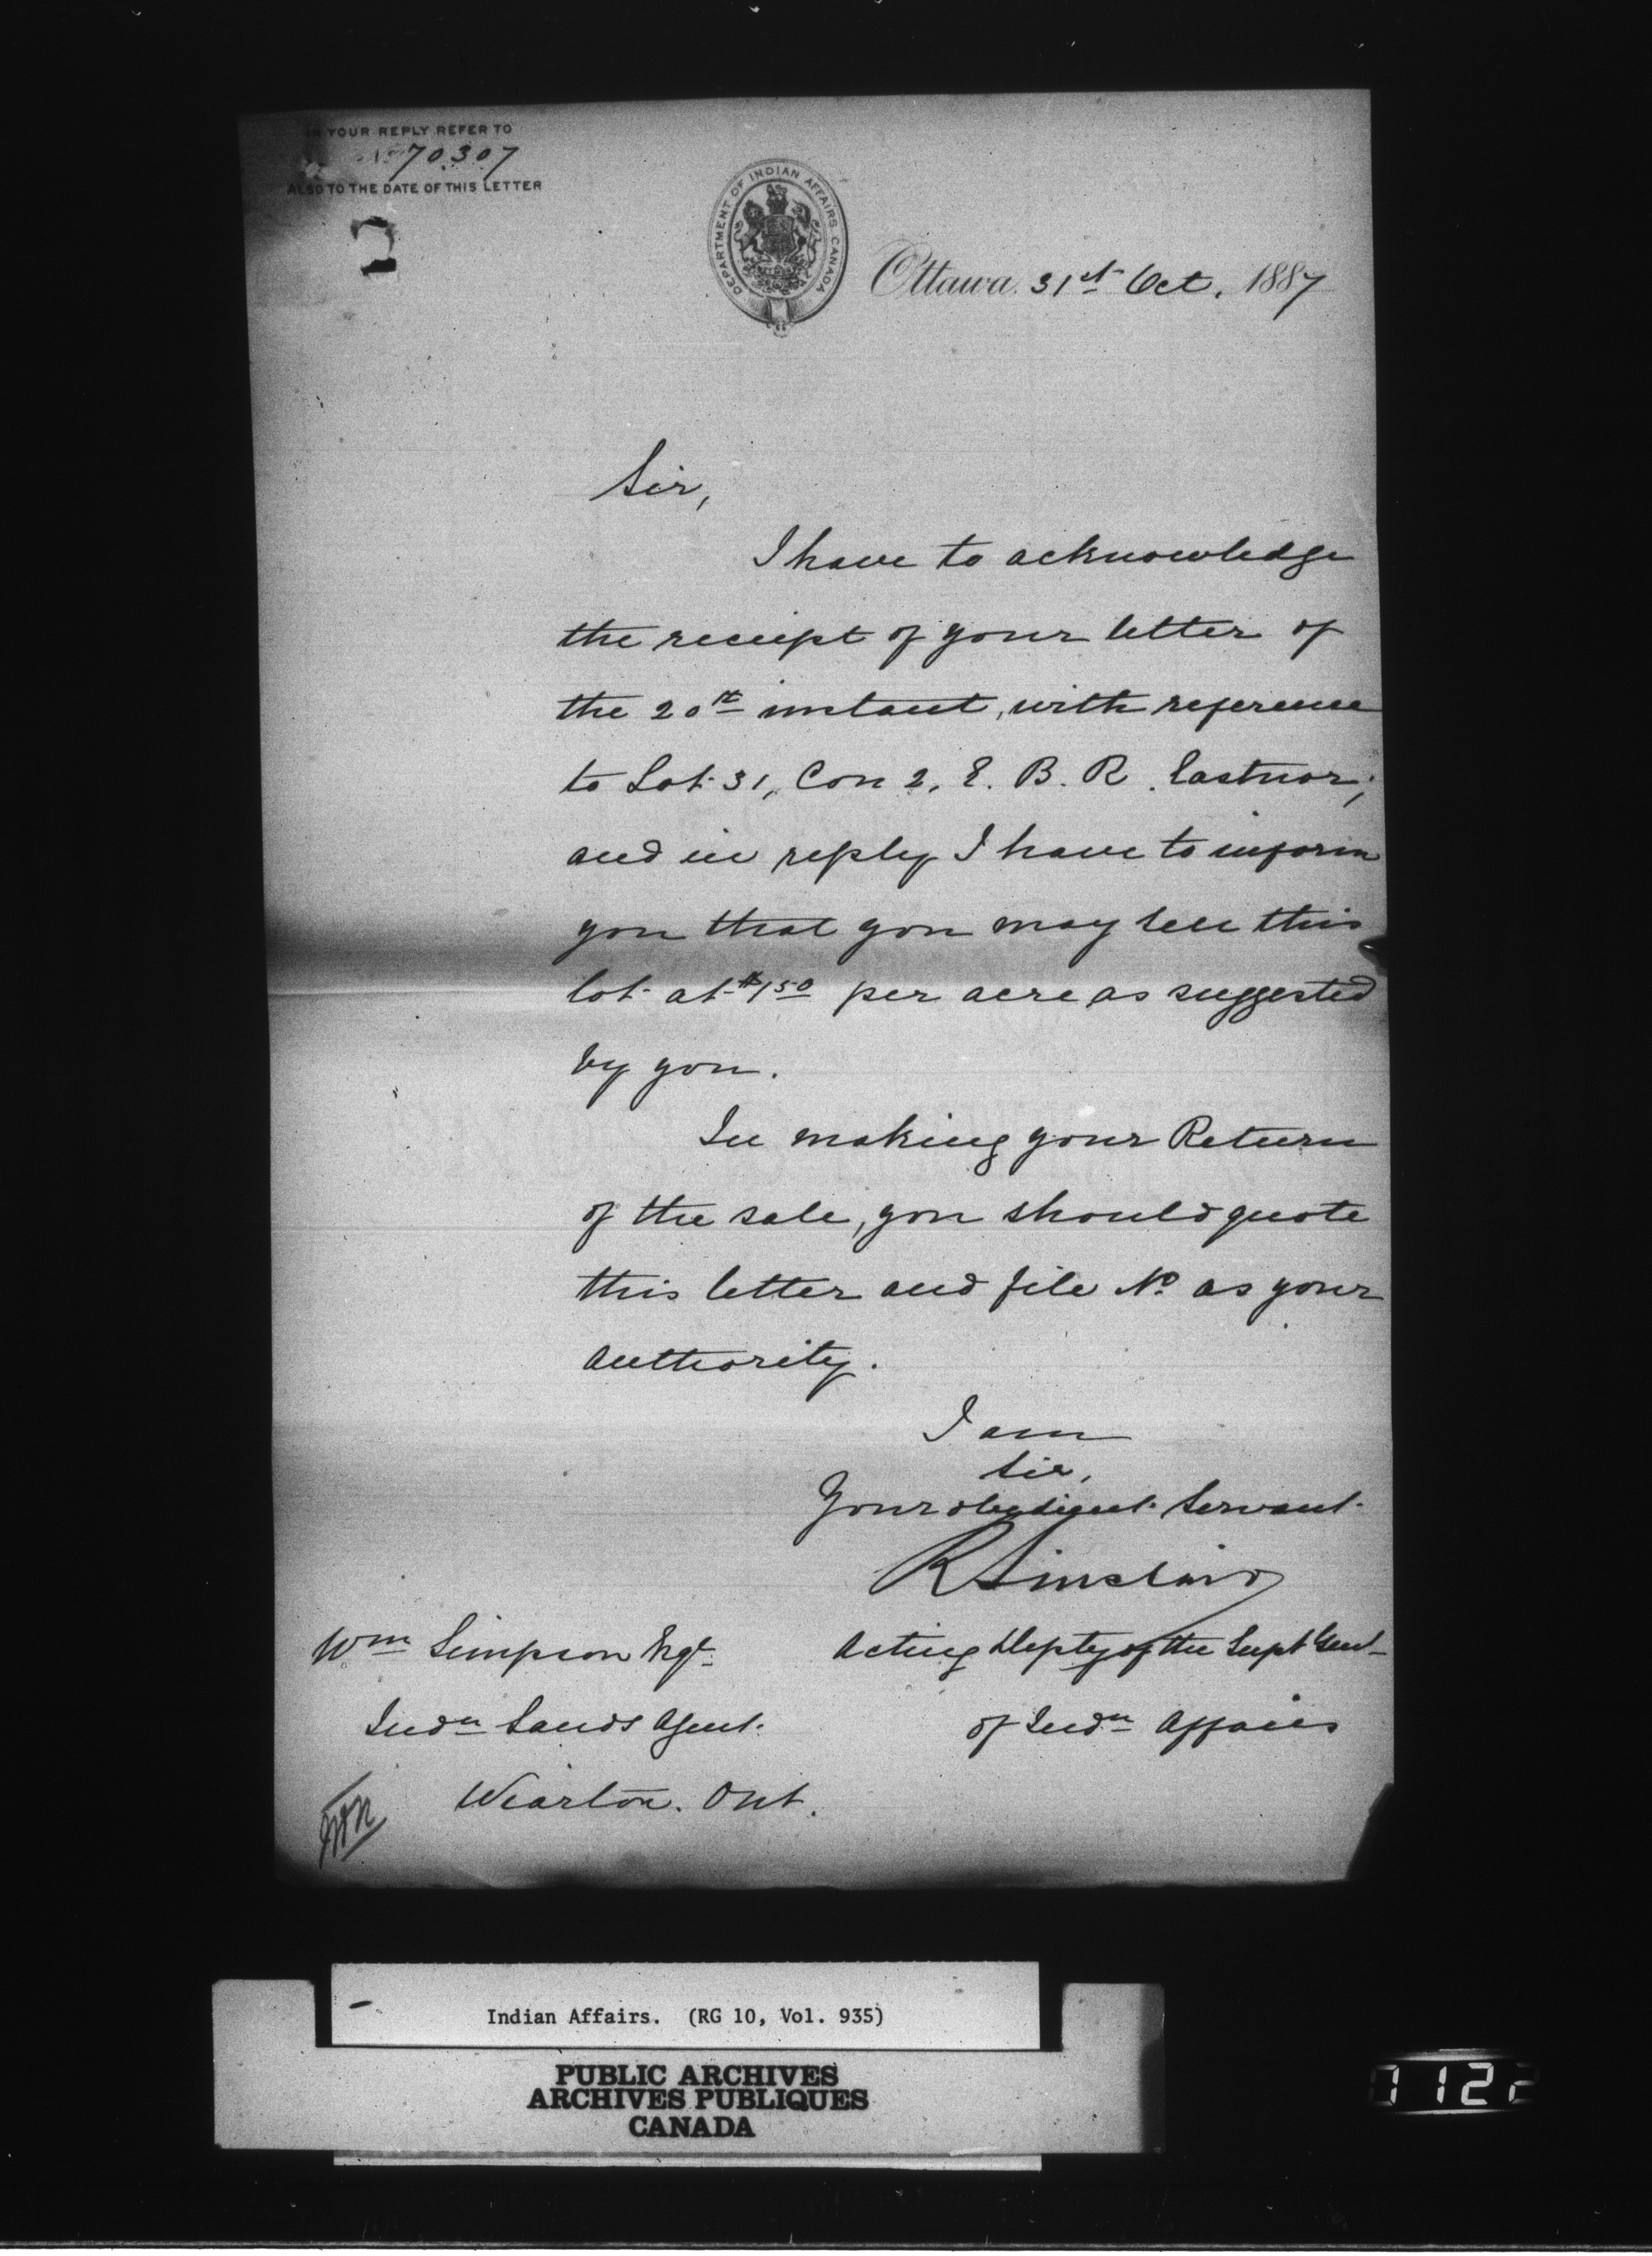 IN YOUR REPLY REFER TO
No 70307
ALSO TO THE DATE OF THIS LETTER
DEPARTMENT OF INDIAN AFFAIRS CANADA
Ottawa. 31st Oct. 1887
Sir,
I have to acknowledge
the receipt of your letter of
the 20th instant, with reference
to Lot 31, Con 2, E. B. R. Eastnor;
and in reply I have to inform
you that you may sell this
lot at $1.50 per acre as suggested
by you.
In making your Return
of the sale, you should quote
this letter and file No as your
authority.
I am
Sir,
Your obedient Servant
R Sinclair
Acting Depty of the Supt Genl
of Indn Affairs
Wm Simpson Esqr
Indn Lands Agent
Wiarton. Ont.
Indian Affairs. (RG 10, Vol. 935)
PUBLIC ARCHIVES
ARCHIVES PUBLIQUES
CANADA